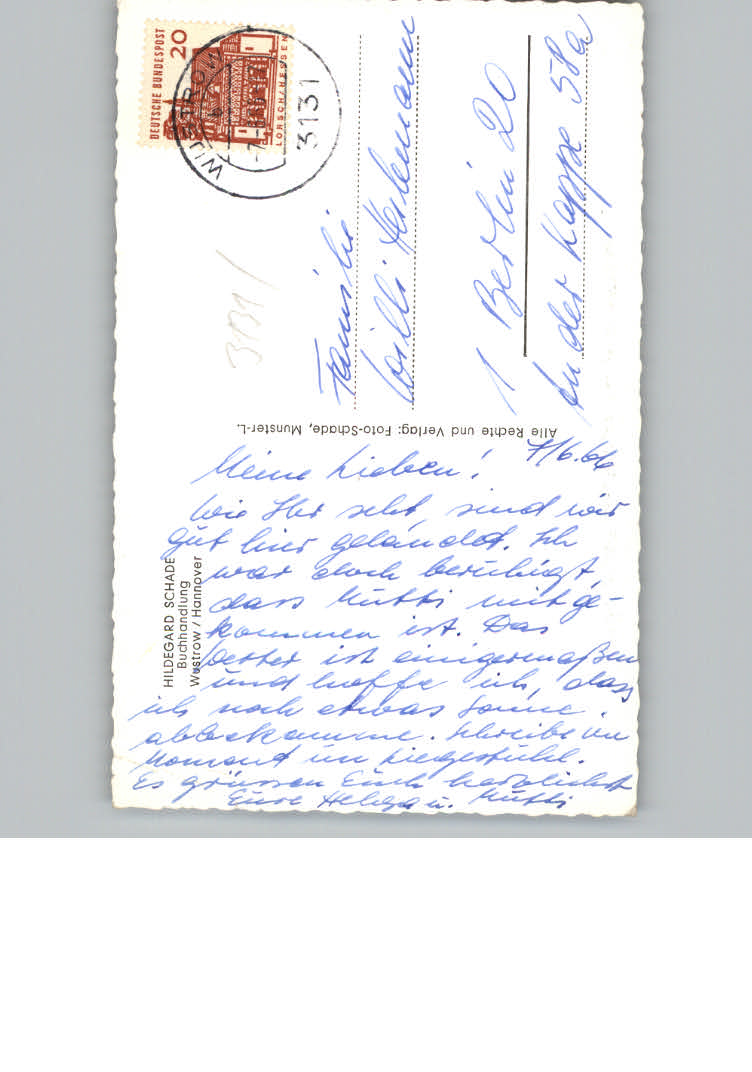 DEUTSCHE BUNDESPOST
20
LORSCH/HESSEN
WUSTROW
3131
3131
Familie
Willi
1 Berlin 20
An der Kappe 58a
Alle Rechte und Verlag: Foto-Schade, Munster-L.
HILDEGARD SCHADE
Buchhandlung
Wustrow / Hannover
7/6.66
Meine Lieben!
Wie Ihr seht, sind wir
gut hier gelandet. Ich
war doch beruhigt,
dass Mutti mitge-
kommen ist. Das
Wetter ist einigermaßen
und hoffe ich, dass
ich noch etwas Sonne
abbekomme. Schreibe im
Moment im Liegestuhl.
Es grüssen Euch herzlichst
Eure Helga u. Mutti